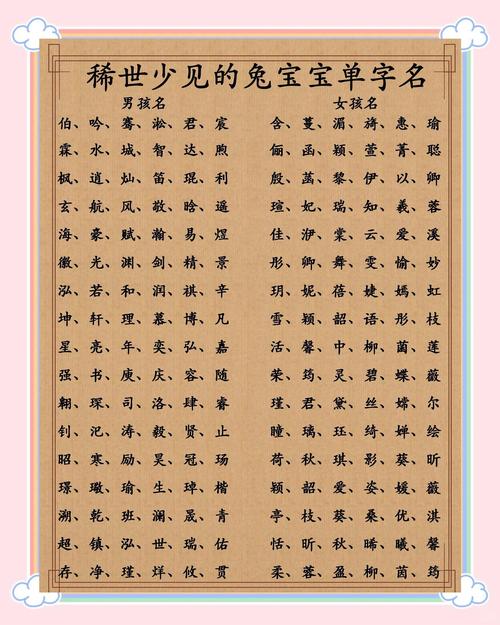 稀世少见的兔宝宝单字名
男孩名
伯、吟、骞、淞、君、宸
霖、水、城、智、达、煦
枫、逍、灿、笛、琨、利
玄、航、风、敬、晗、遥
海、豪、赋、瀚、易、煜
徽、光、渊、剑、精、景
泓、若、和、润、祺、辛
坤、轩、理、慕、博、凡
星、亮、年、奕、弘、嘉
强、书、庚、庆、容、随
翱、琛、司、洛、肆、睿
钊、汜、涛、毅、贤、止
昭、寒、励、昊、冠、玚
璟、璥、瑜、生、琸、楷
溯、乾、班、澜、晟、青
超、镇、泓、世、瑞、佑
存、净、瑾、烊、攸、贯
女孩名
含、蔓、湄、旖、惠、瑜
俪、函、颖、萱、菁、聪
殷、菡、黎、伊、以、卿
瑄、妃、瑞、知、羲、蓉
佳、渺、棠、云、爱、溪
彤、卿、舞、雯、愉、妙
玥、妮、蓓、婕、嫣、虹
雪、颖、韶、语、彤、枝
活、馨、中、柳、茵、莲
荣、筠、灵、碧、蝶、薇
瑾、君、黛、丝、嫦、尔
瞳、璃、珏、绮、婵、绘
荷、秋、琪、影、葵、昕
颖、韶、爱、姿、媛、薇
亭、枝、葵、桑、优、淇
恬、昕、秋、晞、曦、馨
柔、蓉、盈、柳、茵、筠